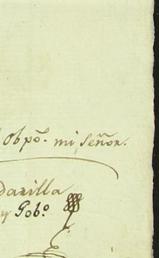 Obpō. mi Señor.
darilla
y Gobō.